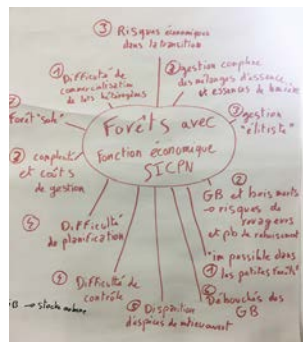 ③ Risques économiques
dans la transition
① Difficulté de
commercialisation
de lots hétérogènes
② gestion complexe
des mélanges d'essence
et essences de lumière
③ gestion
"élitiste"
Forêt "sale"
Forêts avec
fonction économique
SICPN
② complexité
et coûts
de gestion
② GB et bois morts
→ risques de
ravageurs
et pb de
④ Difficulté
de planification
"impossible dans
① les petites forêts"
① Difficulté
de contrôle
Débouchés des
GB
Disparition
d'espèces de milieu ouvert
GB →